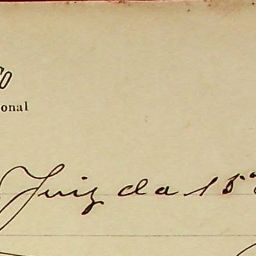 onal
Juiz da 15